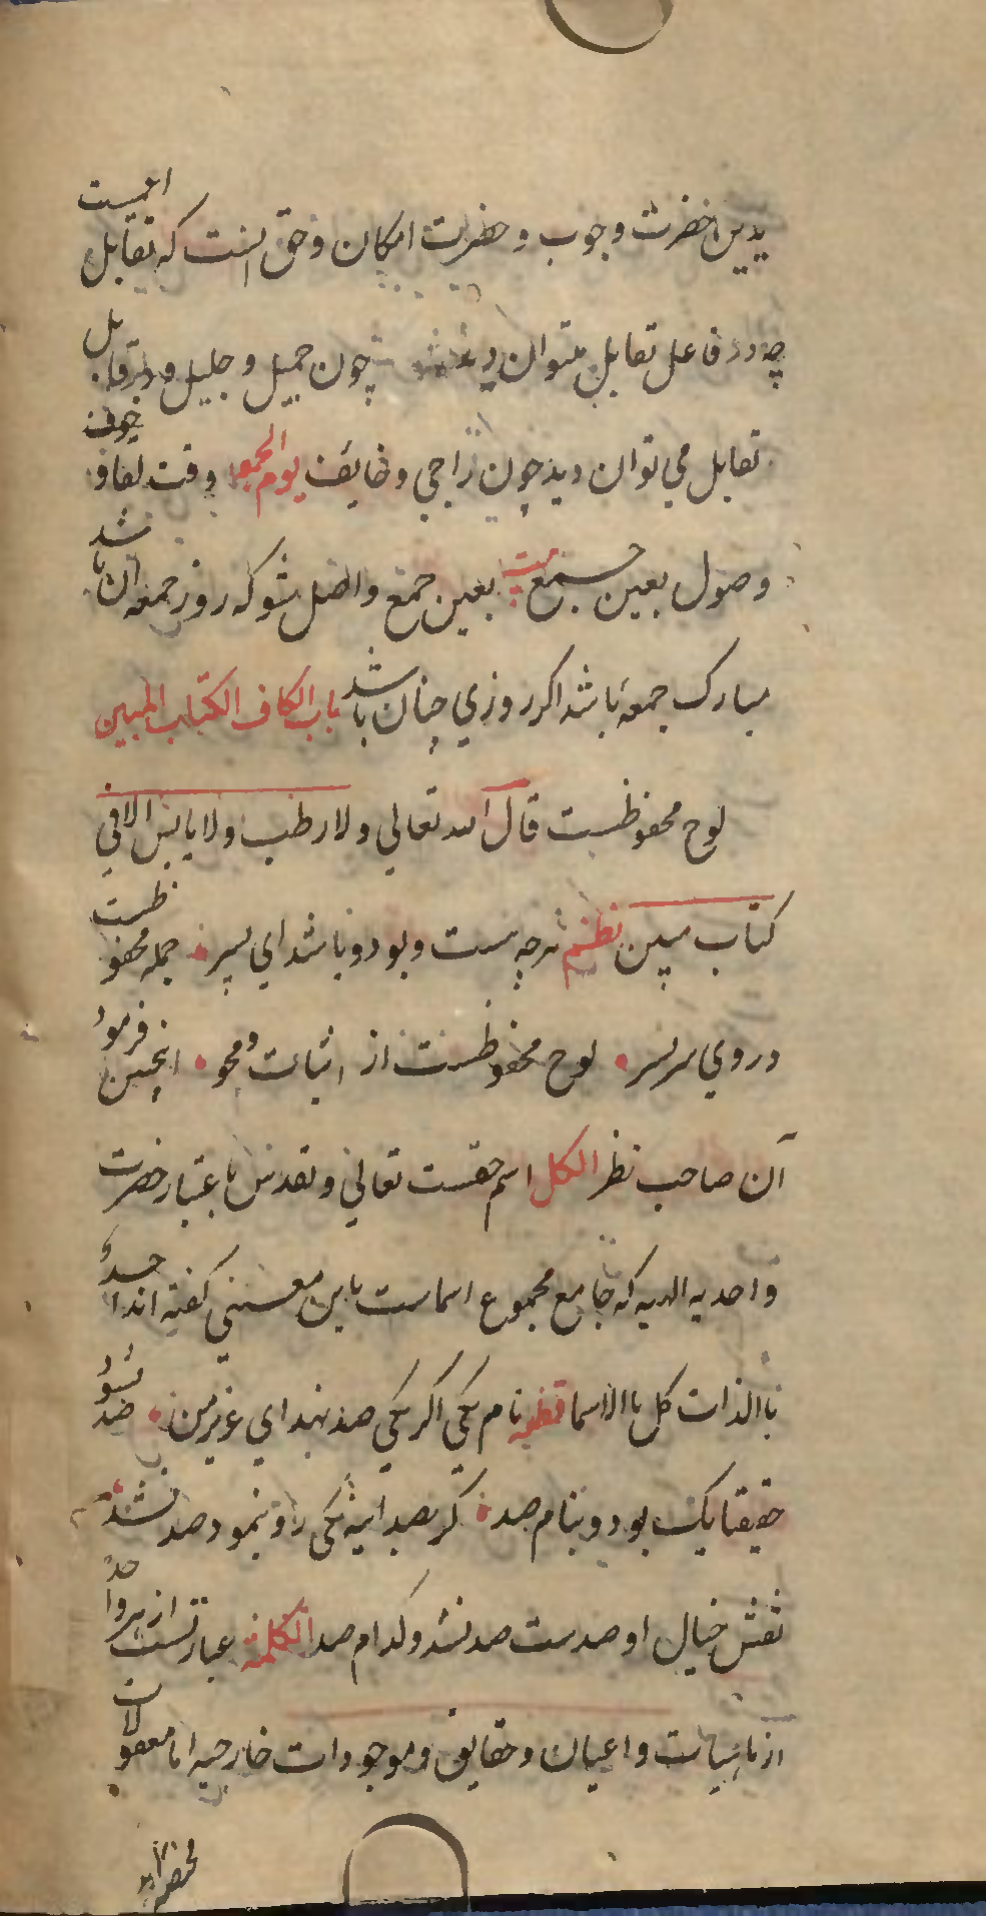 یدین حضرت وجوب و حضرت امکان و حق انست که تقابل اعمست
چه در فاعل تقابل میتوان دید چون جمیل و جلیل و در قابل
تقابل می توان دید چون راجی و خایف یوم الجمعه وقت لقا و
وصول بعین جمع بیت بعین جمع واصل شو که روز جمعه ان باشد
مبارک جمعه باشد اکر روزی چنان باشد باب الکاف الکتاب المبین
لوح محفوظست قال الله تعالی ولا رطب ولا یابس الا فی
کتاب مبین نظم هرچه هست و بود و باشد ای پسر جمله محفوظست
در وی سربسر لوح محفوظست از اثبات و محو اینچنین فرمود
آن صاحب نظر الکل اسم حقست تعالی و تقدس باعتبار حضرت
واحدیه الهیه که جامع مجموع اسماست باین معنی کفته اند احد
باالذات کل باالاسما قطعه نام یکی اکر یکی صد بنهد ای عزیز من صد نشود
حقیقتا یک بود و بنام صد کر بصد اینه یکی رو بنمود صد نشد
نقش خیال او صدست صد نشد و کدام صد الکلمة عبارتست از هر واحد
از ماهیات و اعیان و حقایق و موجودات خارجیه اما معقولات